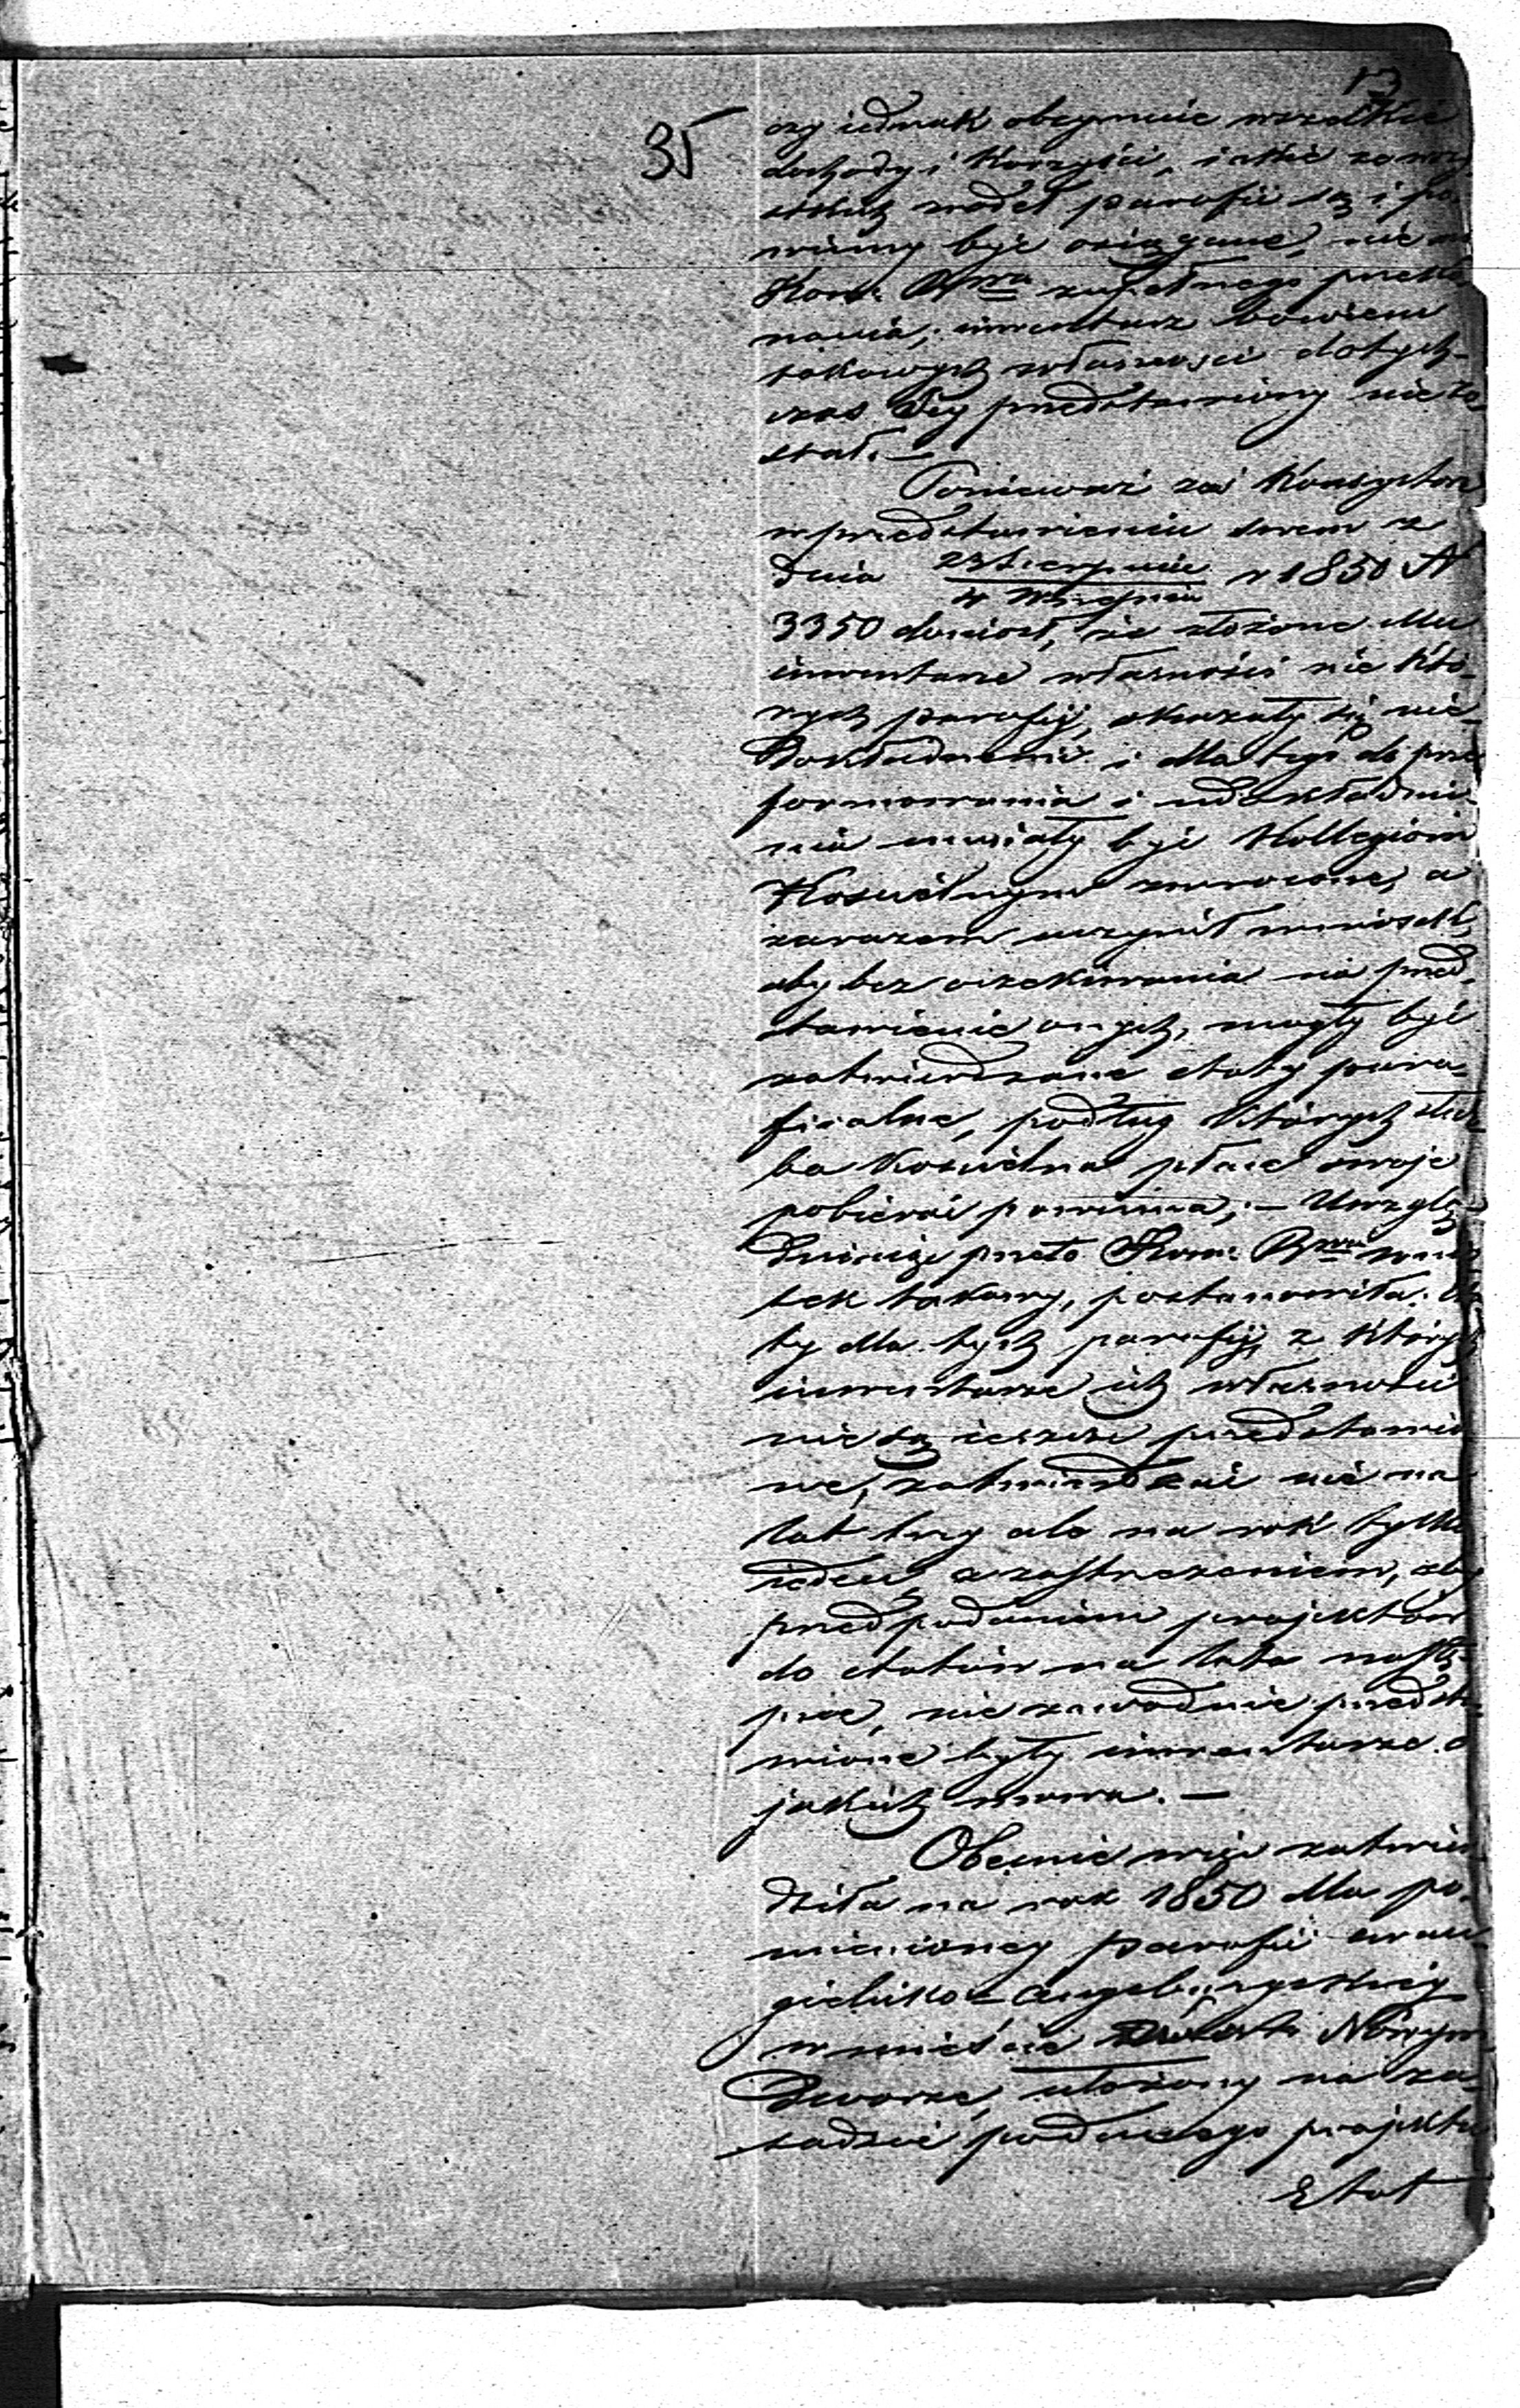 13
35
czy iednak obeymuie wszelkie
dochody i korzyści, iakie ze wszy
stkich źródeł parafii są i po-
winny być osiągane, nie ma
Kom: Rząwa zupełnego przeko
nania, inwentarz bowiem
takowych własności dotych-
czas Jey przedstawiony nie zo-
stał. —
Ponieważ zaś Konsystorz
w przedstawieniu swem z
dnia 23 Sierpnia / 4 Września r 1850 N
3350 doniósł, że złożone Mu
inwentarze własności nie któ-
rych parafij, okazały się nie-
dokładnemi i dla tego do prze
formowania i udokładnie-
nia musiały być Kollegiom
Kościelnym zwrócone, a
zarazem uczynił wniosek,
aby bez oczekiwania na przed-
stawienie onych, mogły być
zatwierdzone etaty para-
fialne, podług których służ
ba kościelna płace swoje
pobierać powinna; — Uwzglę-
dniaiąc przeto Kom: Rząwa wnio
sek takowy, postanowiła: Eta
ty dla tych parafij, z których
inwentarze ich własności
nie są ieszcze przedstawio
ne, zatwierdzać nie na
lat trzy ale na rok tylko
ieden z zastrzeżeniem, aby
przed podaniem projektów
do etatów na lata nastę-
pne, niezawodnie przedsta-
wione były inwentarze o
jakich mowa. —
Obecnie więc zatwier
dziła na rok 1850 dla po-
mienioney parafii ewan-
gielicko-Augsburgskiey
w mieście Nowym
Dworze, ułożony na za-
sadzie podanego projektu
Etat